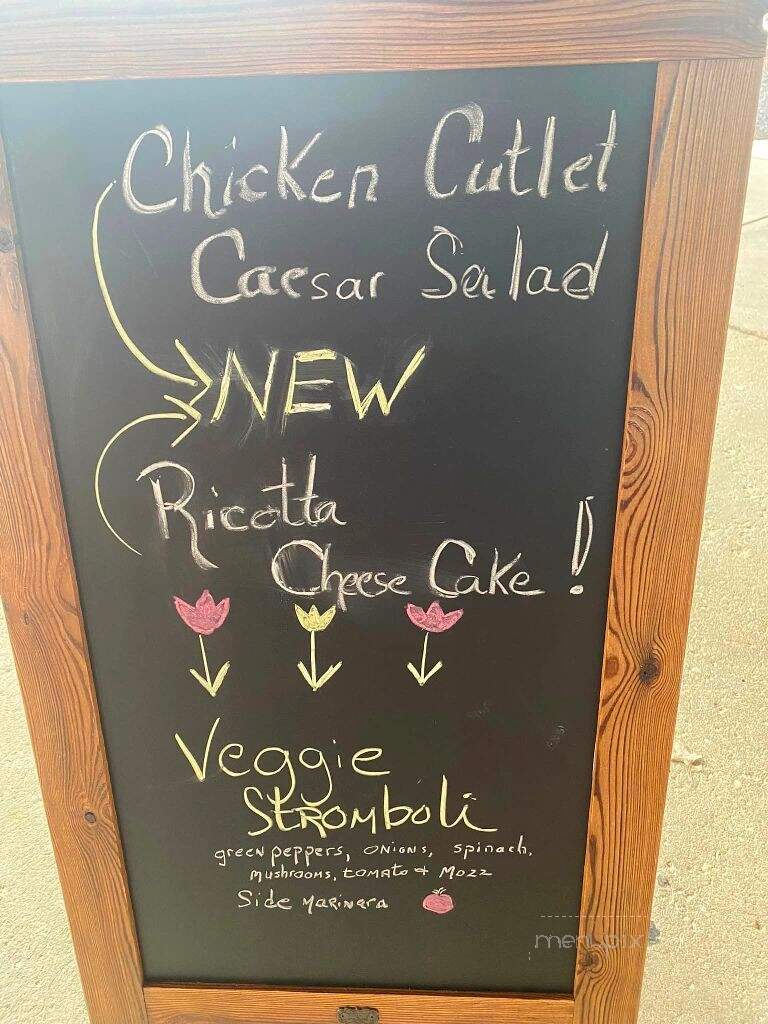 Chicken Cutlet
Caesar Salad
NEW
Ricotta
Cheese Cake !
Veggie
Stromboli
green peppers, onions, spinach,
mushrooms, tomato + Mozz
Side Marinara
menupix